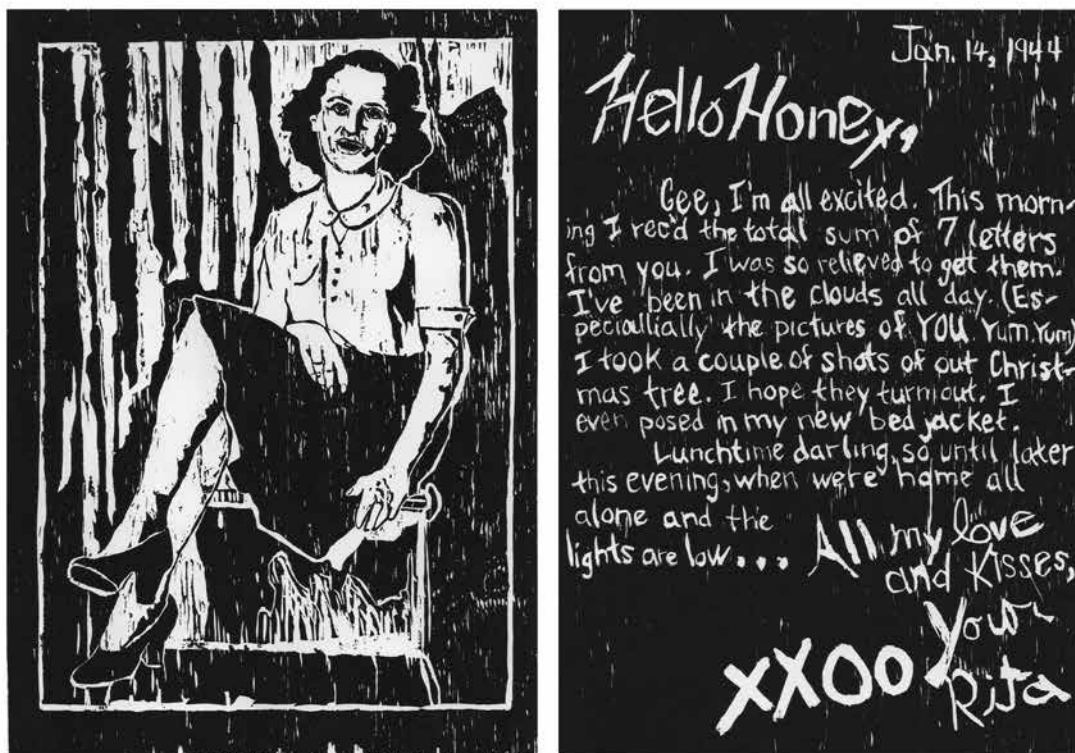 Jan. 14, 1944
Hello Honey,
Gee, I'm all excited. This morn-
ing I rec'd the total sum of 7 letters
from you. I was so relieved to get them.
I've been in the clouds all day. (Es-
peciallially the pictures of YOU Yum Yum)
I took a couple of shots of out Christ-
mas tree. I hope they turn out. I
even posed in my new bed jacket.
Lunchtime darling, so until later
this evening, when we're home all
alone and the
lights are low...
All my love
and Kisses,
Your
Rita
XXOO